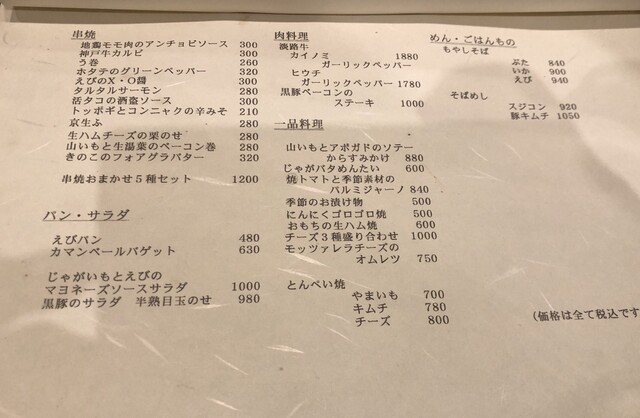 串焼
地鶏モモ肉のアンチョビソース 300
神戸牛カルビ 300
う巻 260
ホタテのグリーンペッパー 320
えびのX・O醤 300
タルタルサーモン 280
活タコの酒盗ソース 300
トッポギとコンニャクの辛みそ 210
京生ふ 280
生ハムチーズの栗のせ 280
山いもと生湯葉のベーコン巻 280
きのこのフォアグラバター 320
串焼おまかせ5種セット 1200
パン・サラダ
えびパン 480
カマンベールバゲット 630
じゃがいもとえびの
マヨネーズソースサラダ 1000
黒豚のサラダ 半熟目玉のせ 980
肉料理
淡路牛
カイノミ 1880
ガーリックペッパー
ヒウチ
ガーリックペッパー 1780
黒豚ベーコンの
ステーキ 1000
一品料理
山いもとアボガドのソテー
からすみかけ 880
じゃがバタめんたい 600
焼トマトと季節素材の
パルミジャーノ 840
季節のお漬け物 500
にんにくゴロゴロ焼 500
おもちの生ハム焼 600
チーズ3種盛り合わせ 1000
モッツァレラチーズの
オムレツ 750
とんぺい焼
やまいも 700
キムチ 780
チーズ 800
めん・ごはんもの
もやしそば
ぶた 840
いか 900
えび 940
そばめし
スジコン 920
豚キムチ 1050
(価格は全て税込です